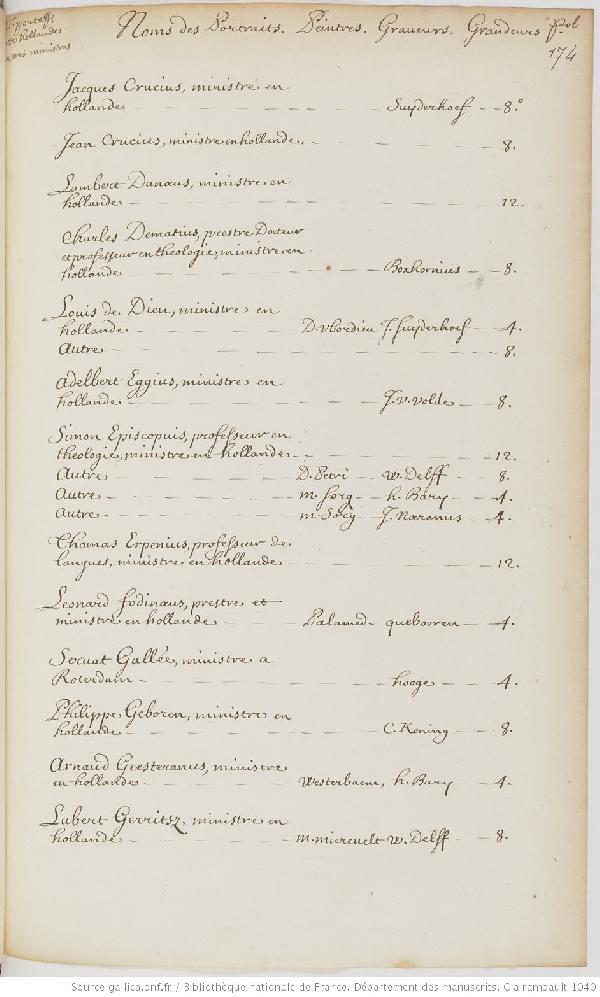 hollande
ministres
Noms des Portraits. Peintres. Graveurs. Grandeurs fol
174
Jacques Crucius, ministre en
hollande — Suyderhoef — 8.º
Jean Crucius, ministre en hollande. — 8.
Lambert Danæus, ministre en
hollande — 12.
Charles Dematius, prestre Docteur
et professeur en theologie, ministre en
hollande — Boxhornius — 8.
Louis de Dieu, ministre en
hollande — D. vbordieu J. Suyderhoef — 4.
Autre — 8.
Adelbert Eggius, ministre en
hollande — J. v. volde — 8.
Simon Episcopuis, professeur en
theologie, ministre en hollande. — 12.
Autre — D. Petri — w. Delff — 8.
Autre — m. Sorg — h. Bary — 4.
Autre — m. Sorg — J. Naranus — 4.
Thomas Erpenius, professeur de
langues, ministre en hollande — 12.
Leonard fodinæus, prestre et
ministre en hollande — Palamed — quebooren — 4.
Servat Gallée, ministre a
Roterdam — hooge — 4.
Philippe Geboren, ministre en
hollande — C. Koning — 8.
Arnaud Geesteranus, ministre
en hollande — Westerbaen, h. Bary — 4.
Lubert Gerritsz, ministre en
hollande — m. mierevelt w. Delff — 8.
Source gallica.bnf.fr / Bibliothèque nationale de France. Département des manuscrits. Clairambault 1040